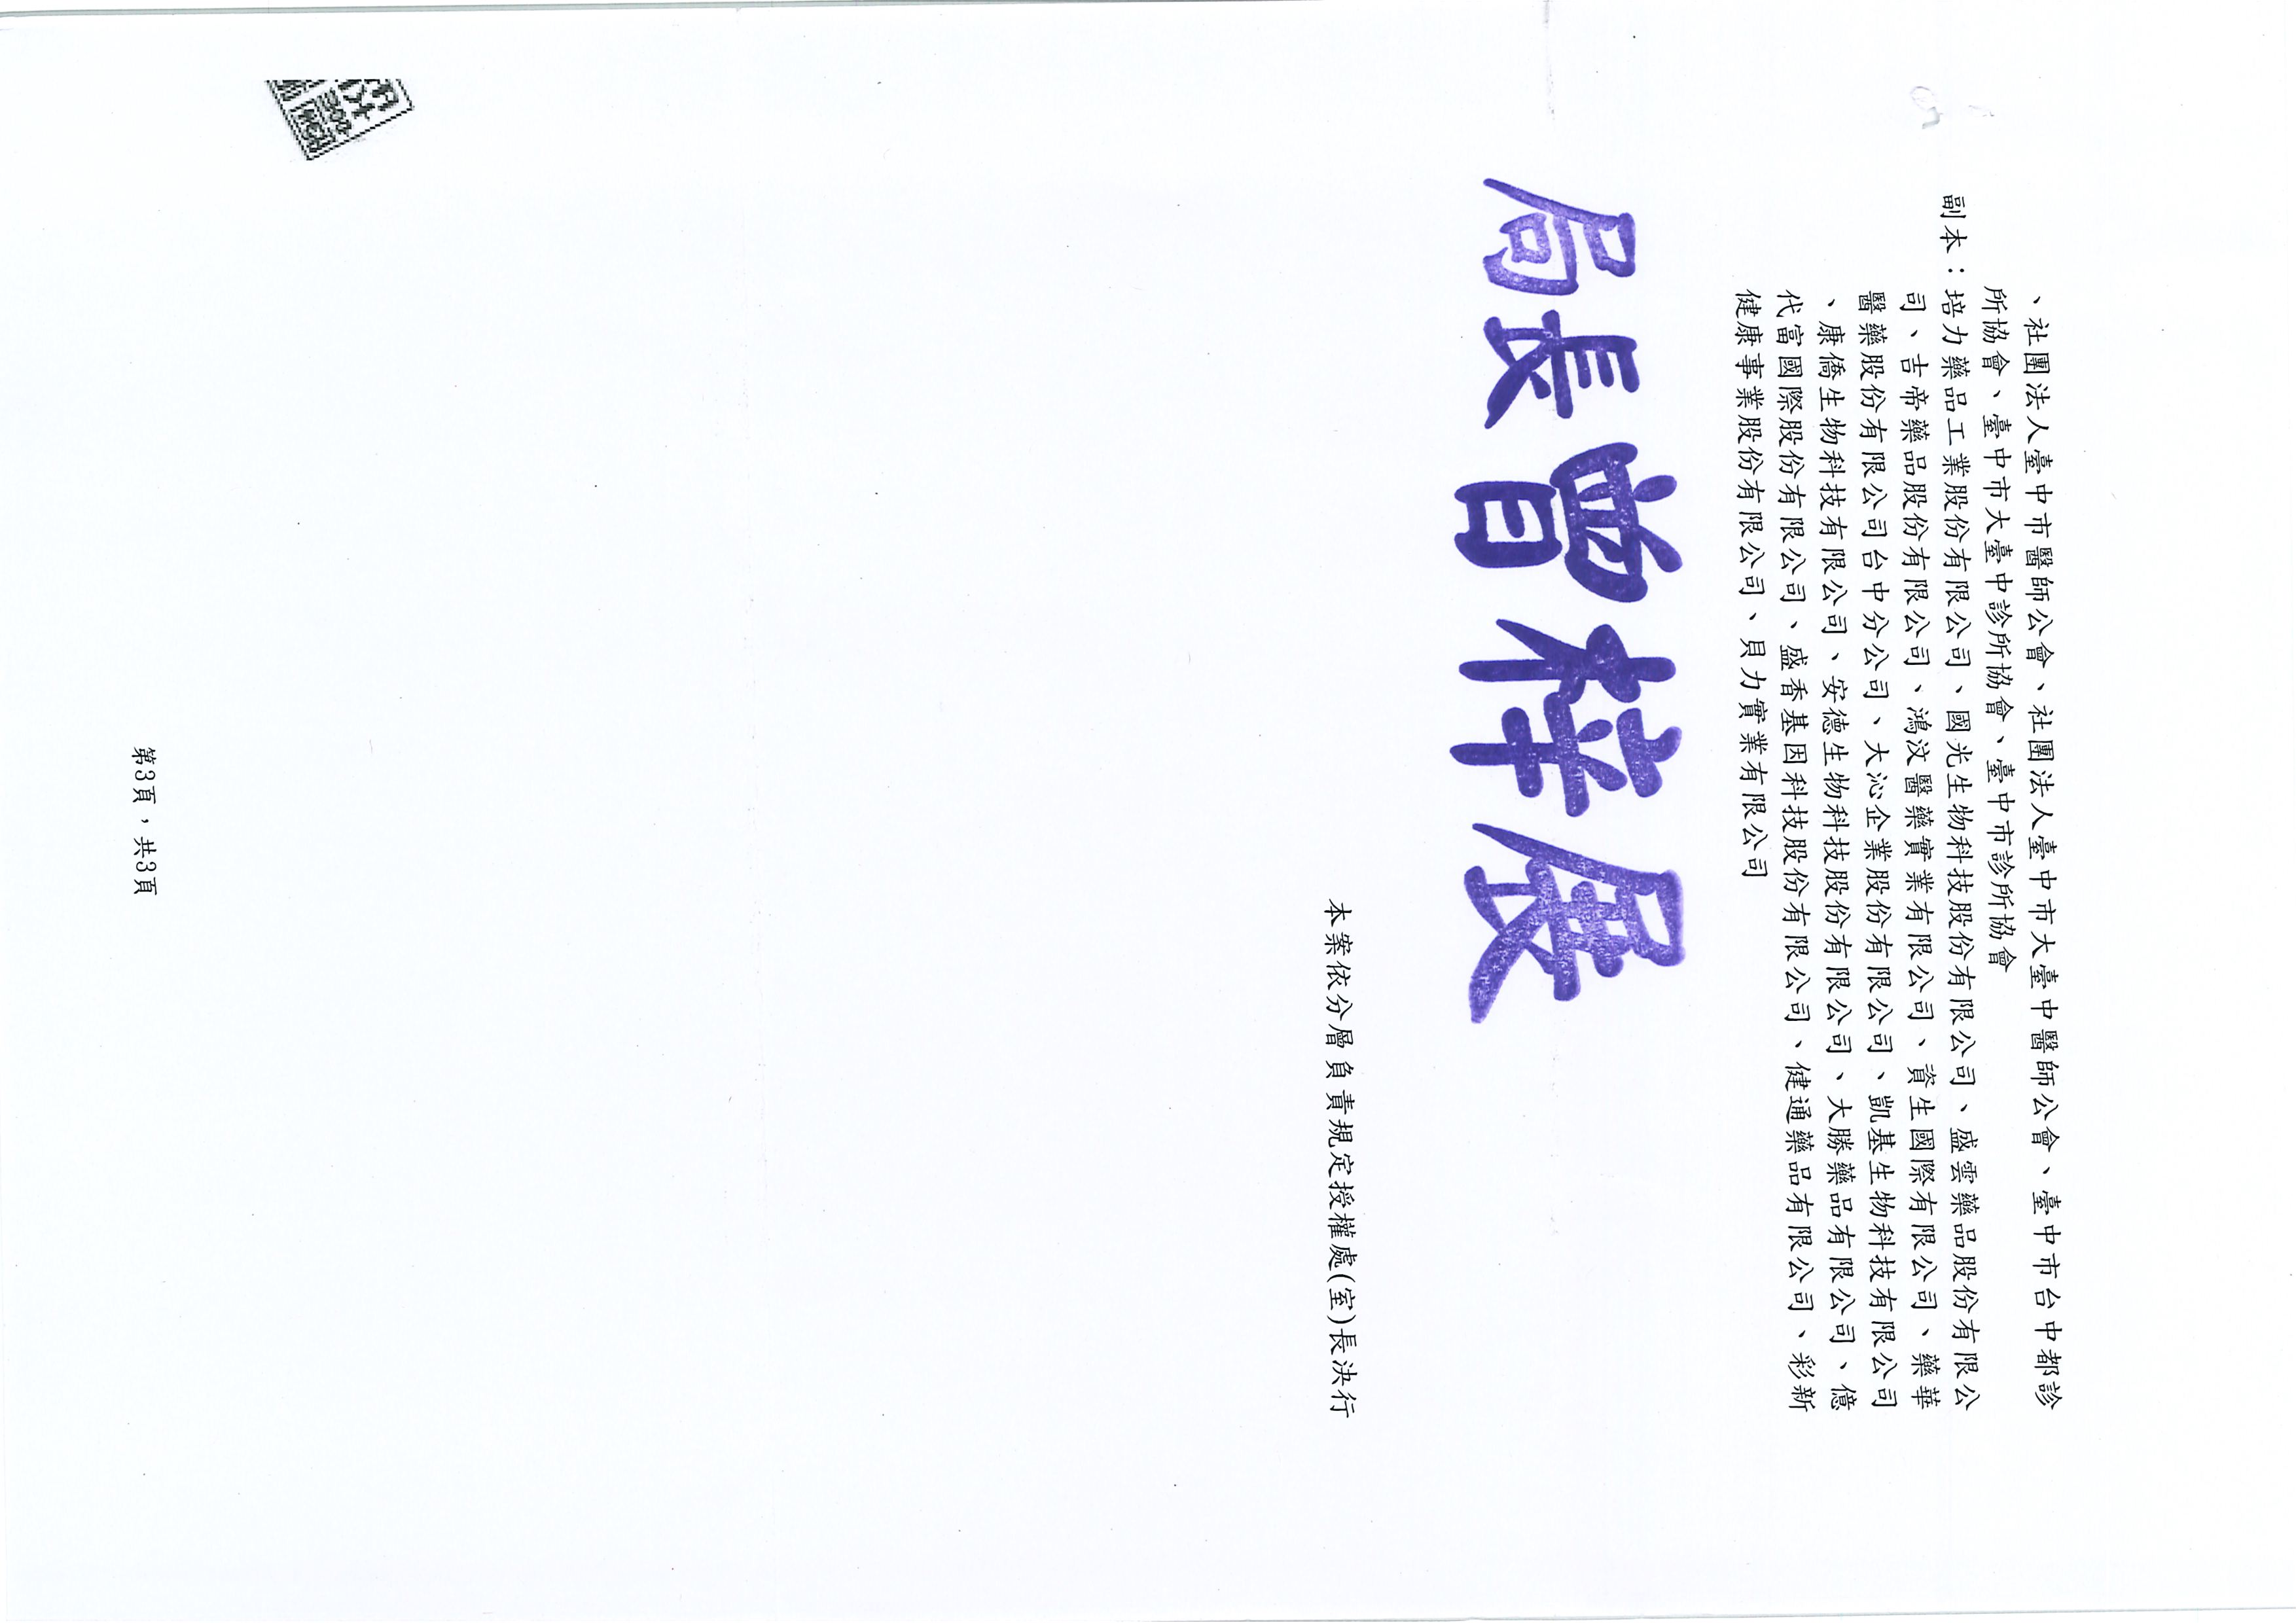 、社團法人臺中市醫師公會、社團法人臺中市大臺中醫師公會、臺中市台中都診
所協會、臺中市大臺中診所協會、臺中市診所協會
副本：培力藥品工業股份有限公司、國光生物科技股份有限公司、盛雲藥品股份有限公
司、吉帝藥品股份有限公司、鴻汶醫藥實業有限公司、資生國際有限公司、藥華
醫藥股份有限公司台中分公司、大沁企業股份有限公司、凱基生物科技有限公司
、康僑生物科技有限公司、安德生物科技股份有限公司、大勝藥品有限公司、億
代富國際股份有限公司、盛香基因科技股份有限公司、健通藥品有限公司、彩新
健康事業股份有限公司、貝力實業有限公司
局長曾梓展
本案依分層負責規定授權處(室)長決行
第3頁，共3頁